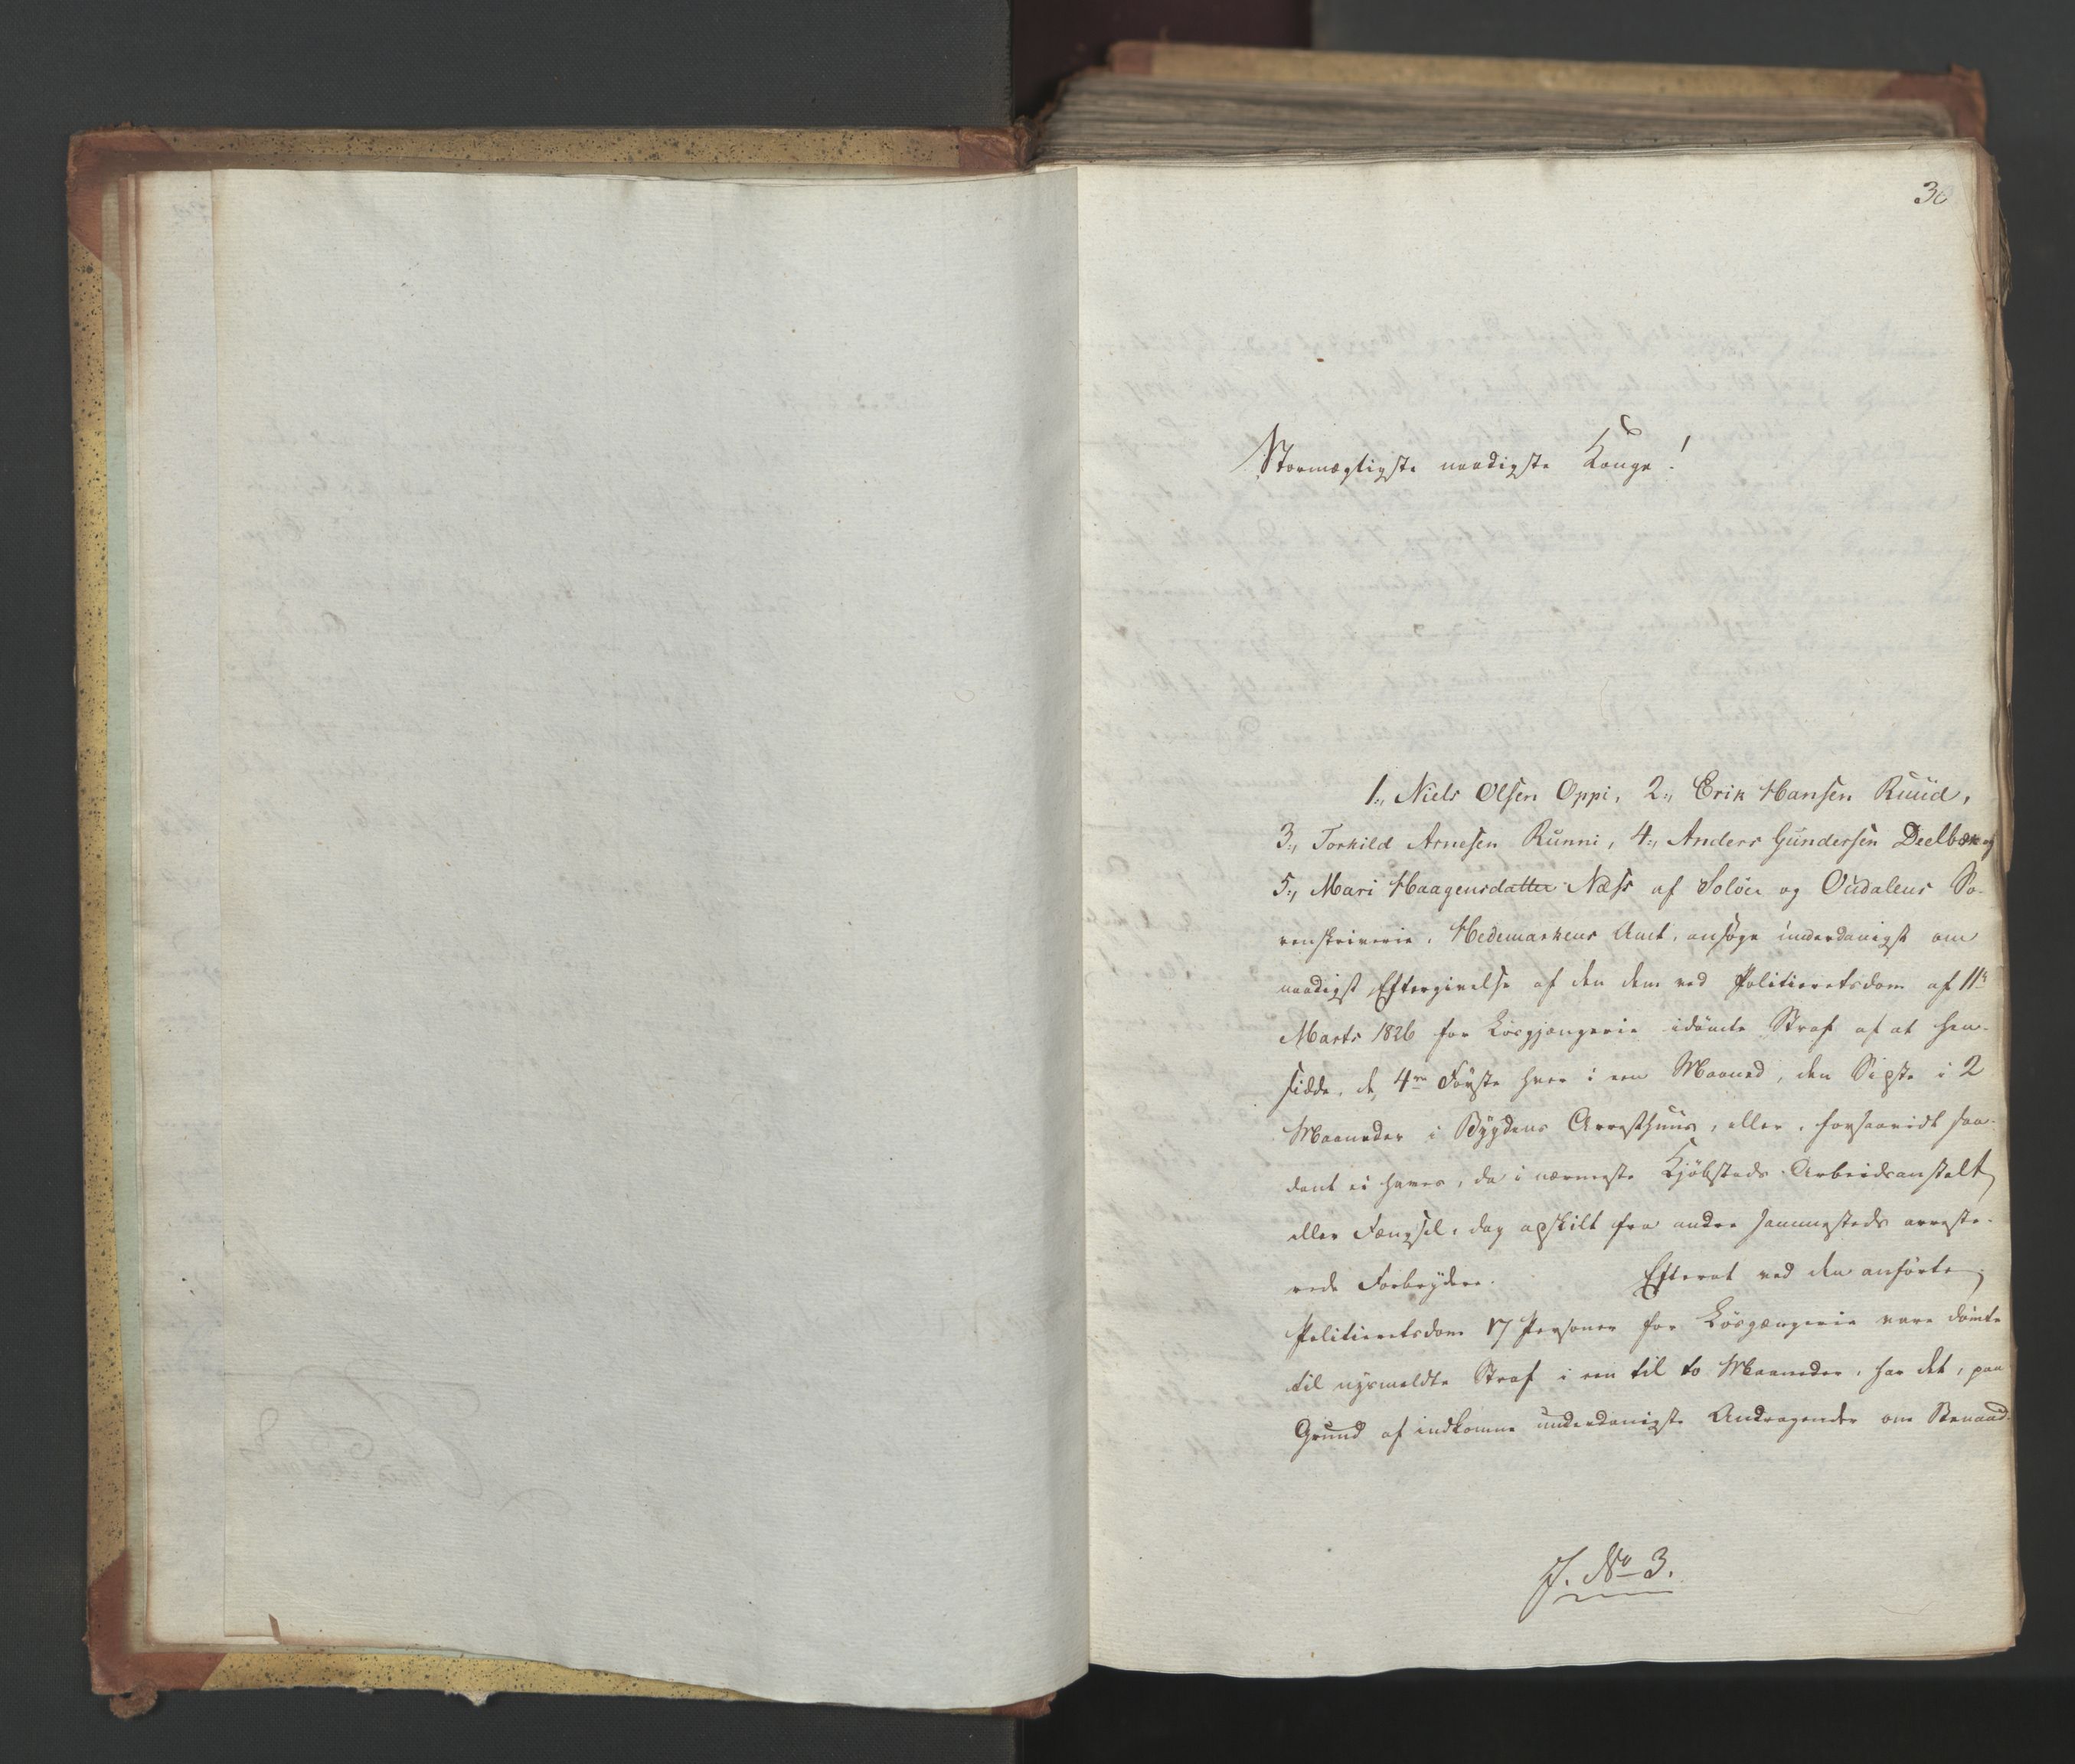 30
Stormægtigste naadigste Konge!
1., Niels Olsen Oppi, 2., Erik Hansen Ruud,
3., Torkild Arnesen Runni, 4., Anders Gundersen Deelbæk og
5., Mari Haagensdatter Næss af Soløer og Oudalens So-
renskriverie, Hedemarkens Amt, ansøge underdanigst om
naadigst Eftergivelse af den dem ved Politieretsdom af 11te
Marts 1826 for Løsgjængerie idømte Straf af at hen-
sidde, de 4re Første hver i een Maaned, den Sidste i 2
Maaneder i Bygdens Arresthuus, eller, forsaavidt saa-
dant ei haves, da i nærmeste Kjøbsteds Arbeidsanstalt
eller Fængsel, dog adskilt fra andre sammesteds arreste-
rede Forbrydere. Efterat ved den anførte
Politieretsdom 17 Personer for Løsgængerie vare dømte
til nysmeldte Straf i een til to Maaneder, har det, paa
Grund af indkomne underdanigste Andragender om Benaad-
J. No 3.